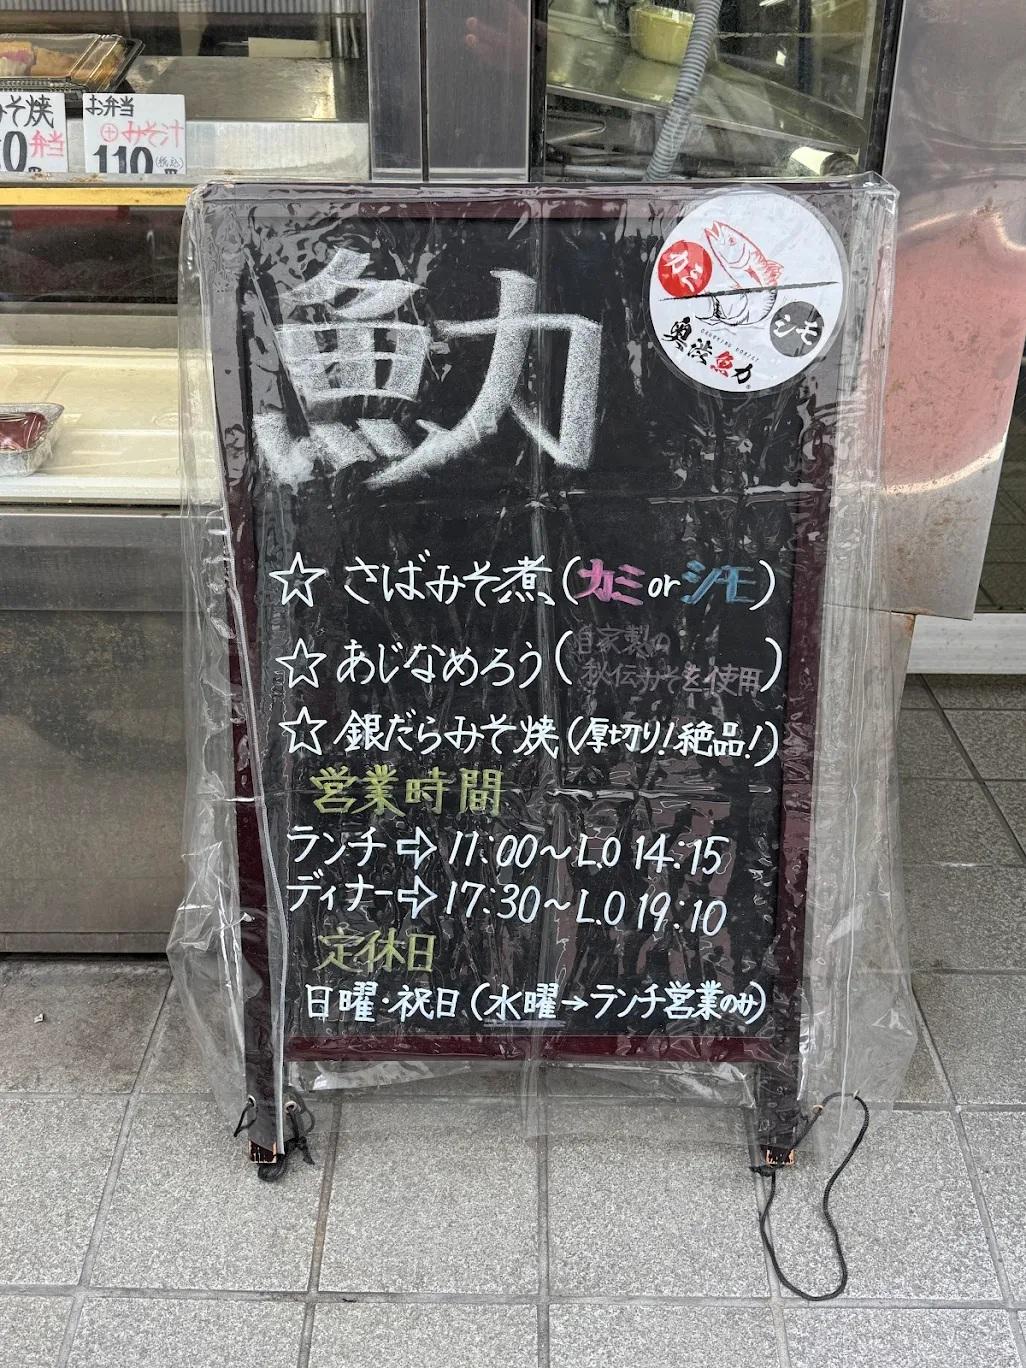 みそ焼
0弁当
お弁当
⊕みそ汁
110(税込)
魚力
カミ
シモ
奥渋魚力
☆ さばみそ煮(カミorシモ)
☆ あじなめろう(自家製の
秘伝みそを使用)
☆ 銀だらみそ焼(厚切り!絶品!)
営業時間
ランチ⇨11:00〜L.O 14:15
ディナー⇨17:30〜L.O 19:10
定休日
日曜・祝日(水曜→ランチ営業のみ)